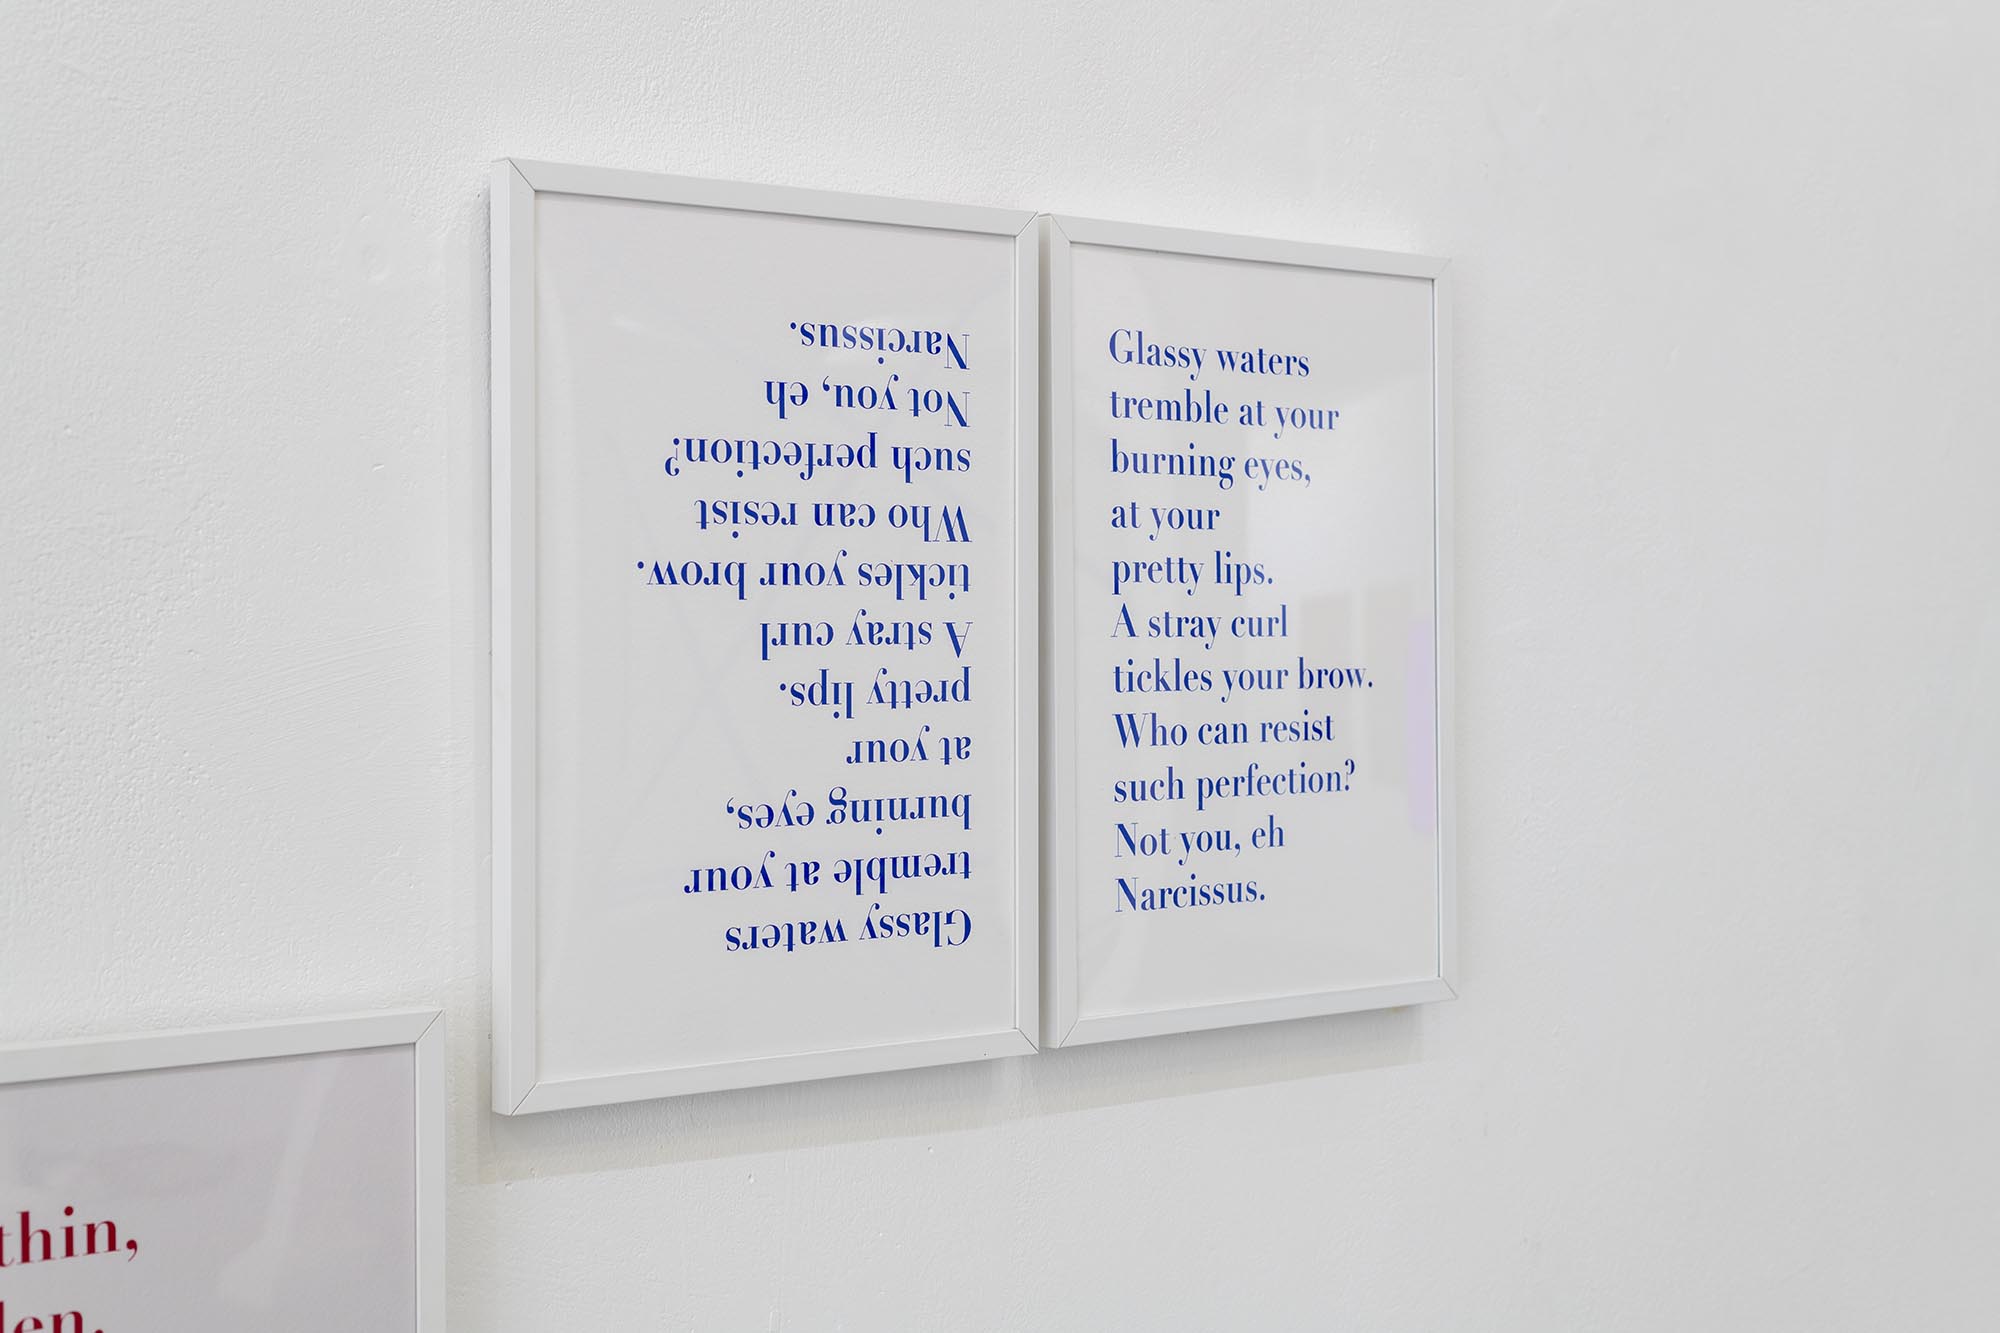 Glassy waters
tremble at your
burning eyes,
at your
pretty lips.
A stray curl
tickles your brow.
Who can resist
such perfection?
Not you, eh
Narcissus.
Glassy waters
tremble at your
burning eyes,
at your
pretty lips.
A stray curl
tickles your brow.
Who can resist
such perfection?
Not you, eh
Narcissus.
thin,